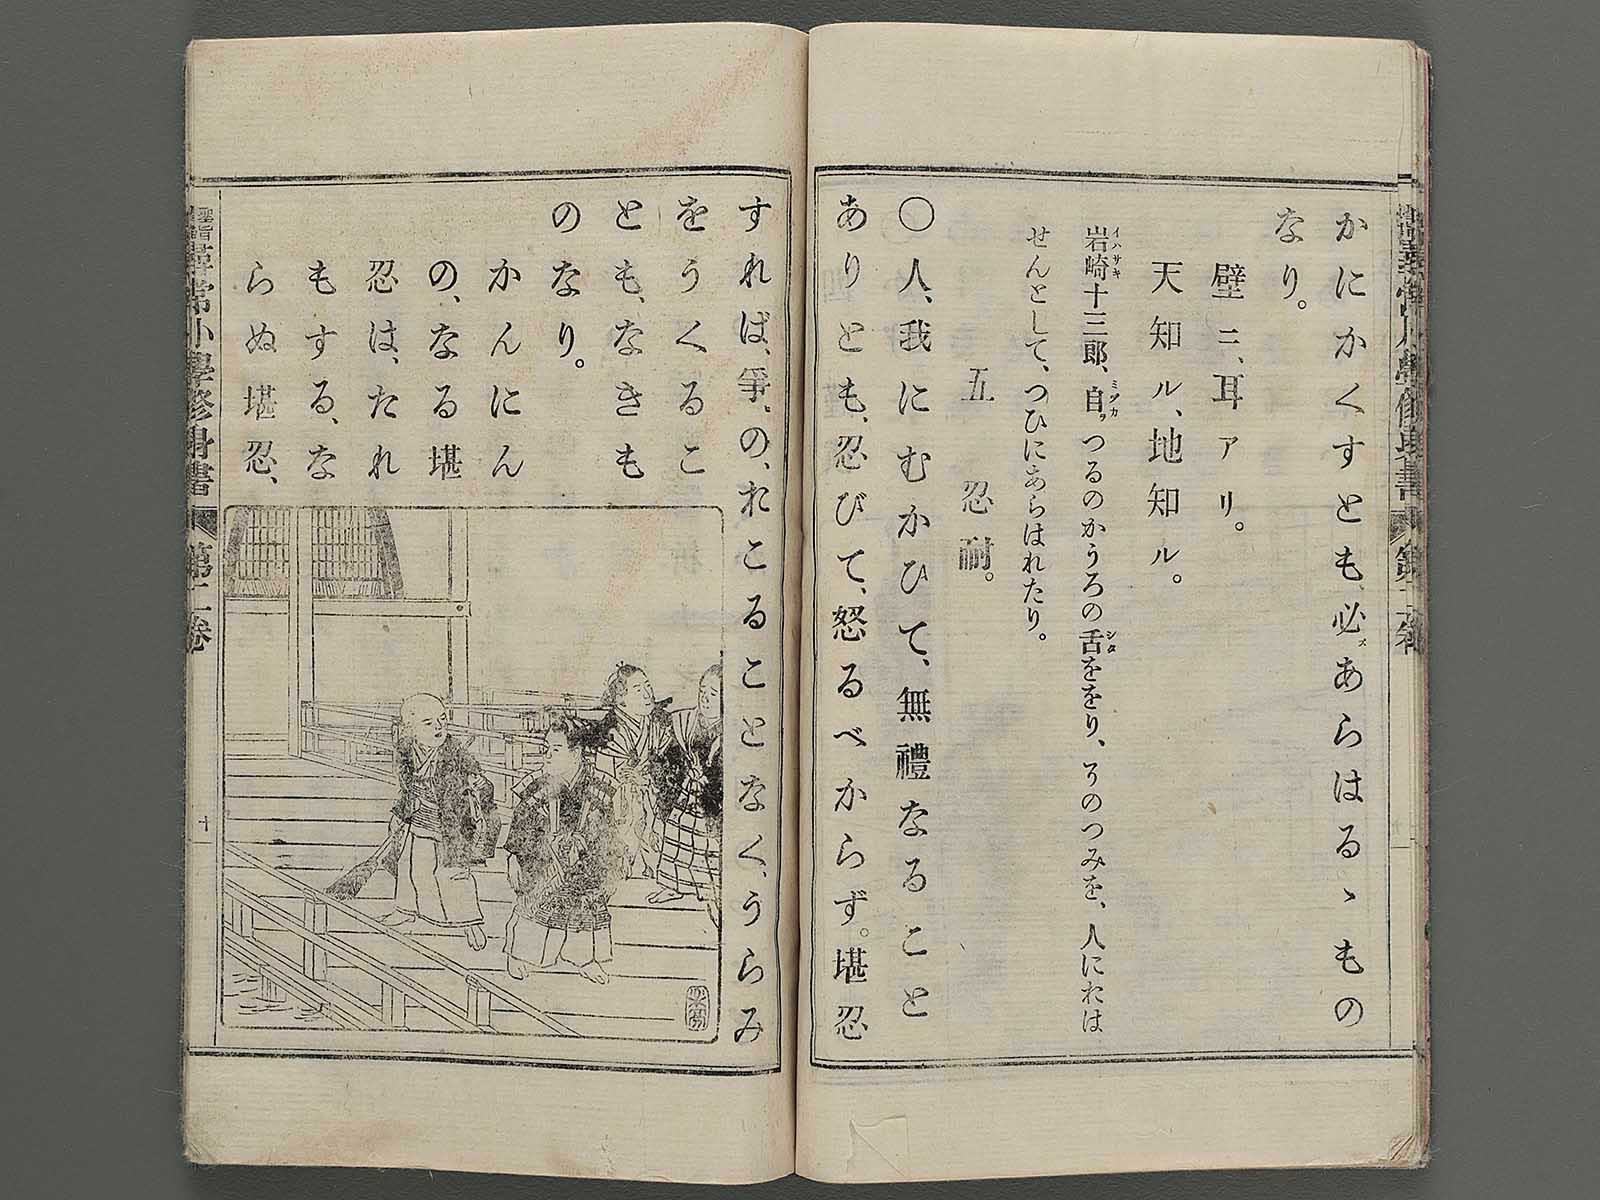 かにかくすとも、必ズあらはるゝもの
なり。
壁ニ、耳アリ。
天知ル、地知ル。
岩崎十三郎、自ヲつるのかうろの舌ををり、そのつみを、人におは
せんとして、つひにあらはれたり。
五 忍耐。
〇人、我にむかひて、無禮なること
ありとも、忍びて、怒るべからず。堪忍
すれば、爭、のおこることなく、うらみ
をうくるこ
とも、なきも
のなり。
かんにん
の、なる堪
忍は、たれ
もする、な
らぬ堪忍、
尋常小學修身書 第二卷 十